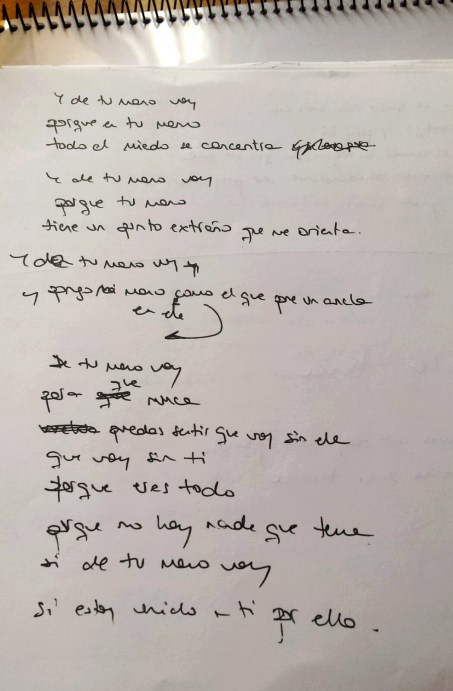 Y de tu mano voy
porque en tu mano
todo el miedo se concentra
Y de tu mano voy
porque tu mano
tiene un punto extraño que me orienta.
Y de tu mano voy
y pongo mi mano como el que pone un ancla
en ella
De tu mano voy
para que nunca
puedas sentir que voy sin ella
que voy sin ti
porque eres todo
porque no hay nada que tema
si de tu mano voy
si estoy unido a ti por ello.